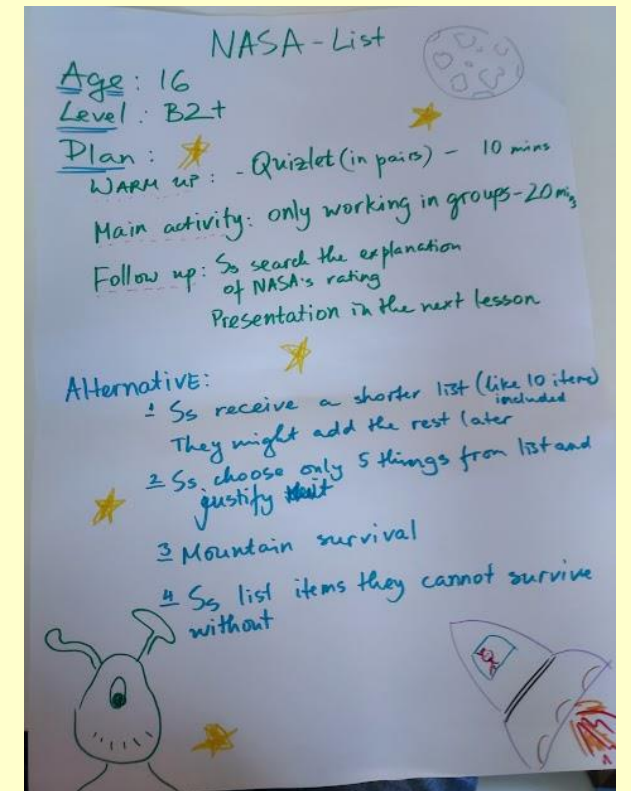 NASA-List
Age: 16
Level: B2+
Plan:
WARM UP: - Quizlet (in pairs) - 10 mins
Main activity: only working in groups-20 mins
Follow up: Ss search the explanation
of NASA's rating
Presentation in the next lesson
Alternative:
1 Ss receive a shorter list (like 10 items)
included
They might add the rest later
2 Ss choose only 5 things from list and
justify it
3 Mountain survival
4 Ss list items they cannot survive
without